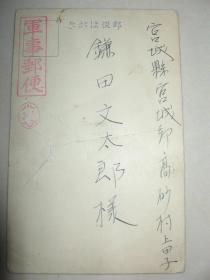 郵便はがき
宮城縣宮城郡高砂村上田子
鎌田文太郎様
軍事郵便